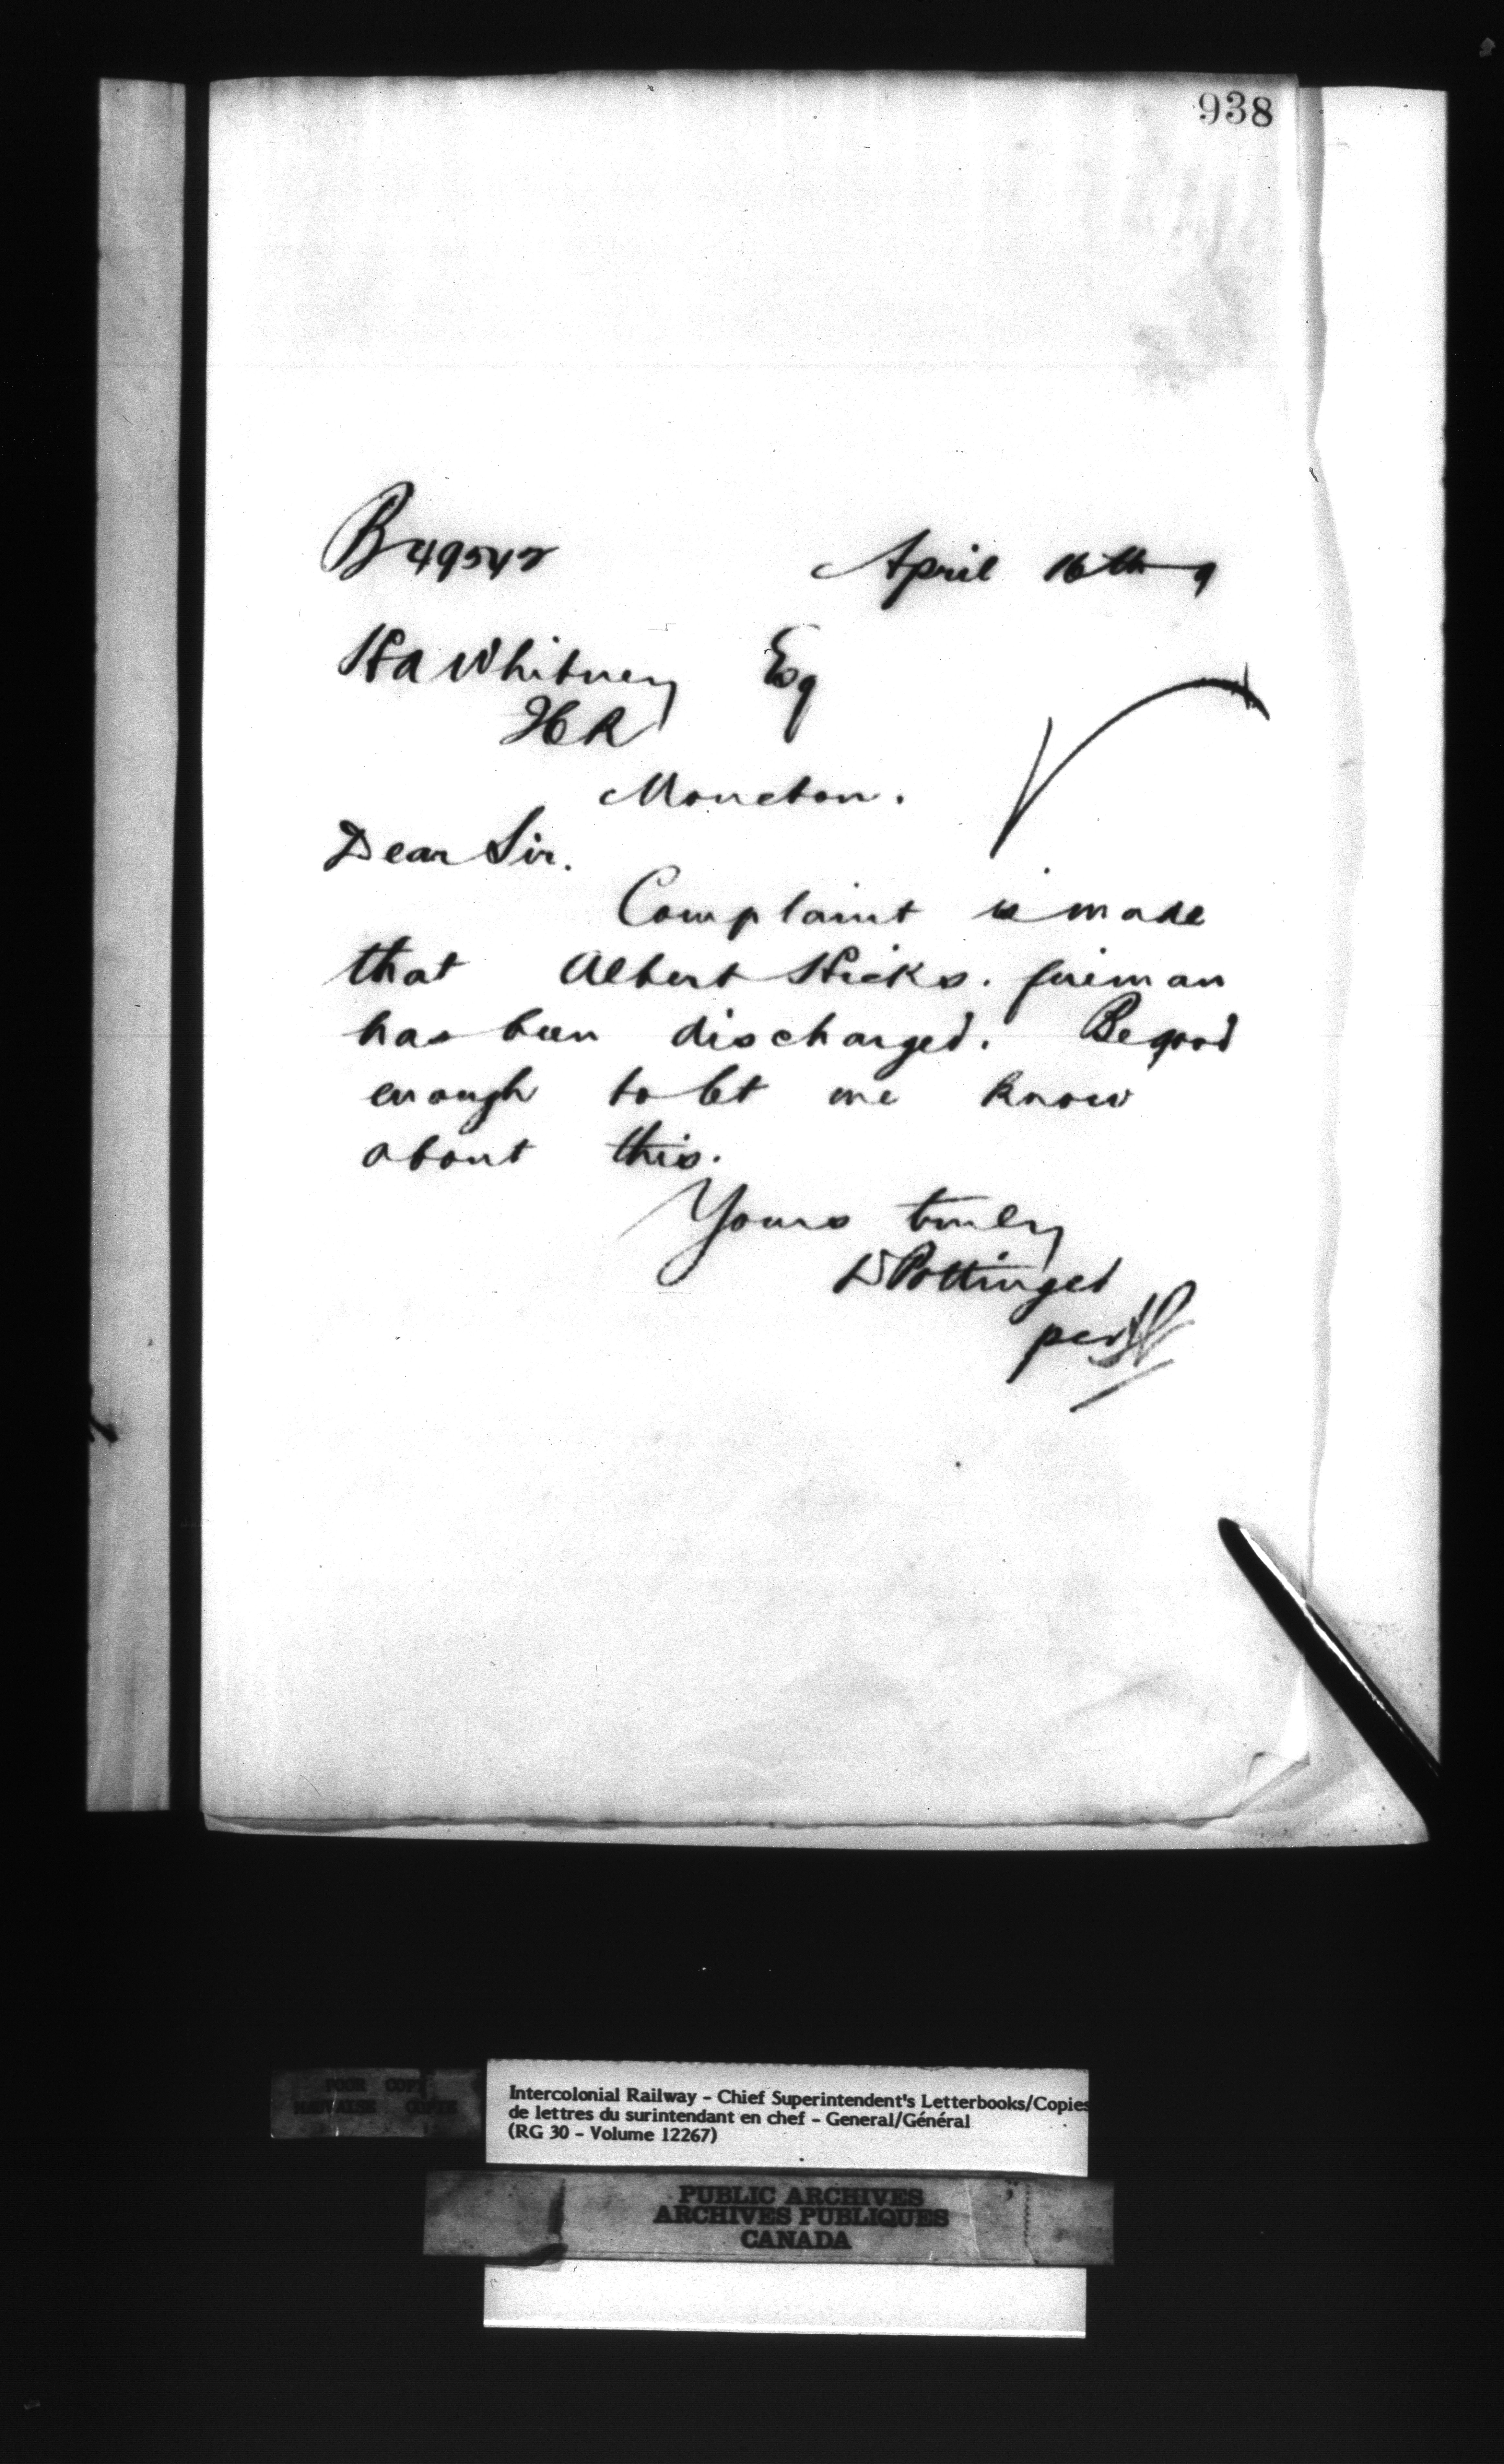 938
B49542
April 16th 9
H A Whitney Esq
I C R
Moncton.
Dear Sir.
Complaint is made
that Albert Hicks. fireman
has been discharged. Be good
enough to let me know
about this.
Yours truly
D Pottinger
per
POOR COPY
MAUVAISE COPIE
Intercolonial Railway - Chief Superintendent's Letterbooks/Copies
de lettres du surintendant en chef - General/Général
(RG 30 - Volume 12267)
PUBLIC ARCHIVES
ARCHIVES PUBLIQUES
CANADA